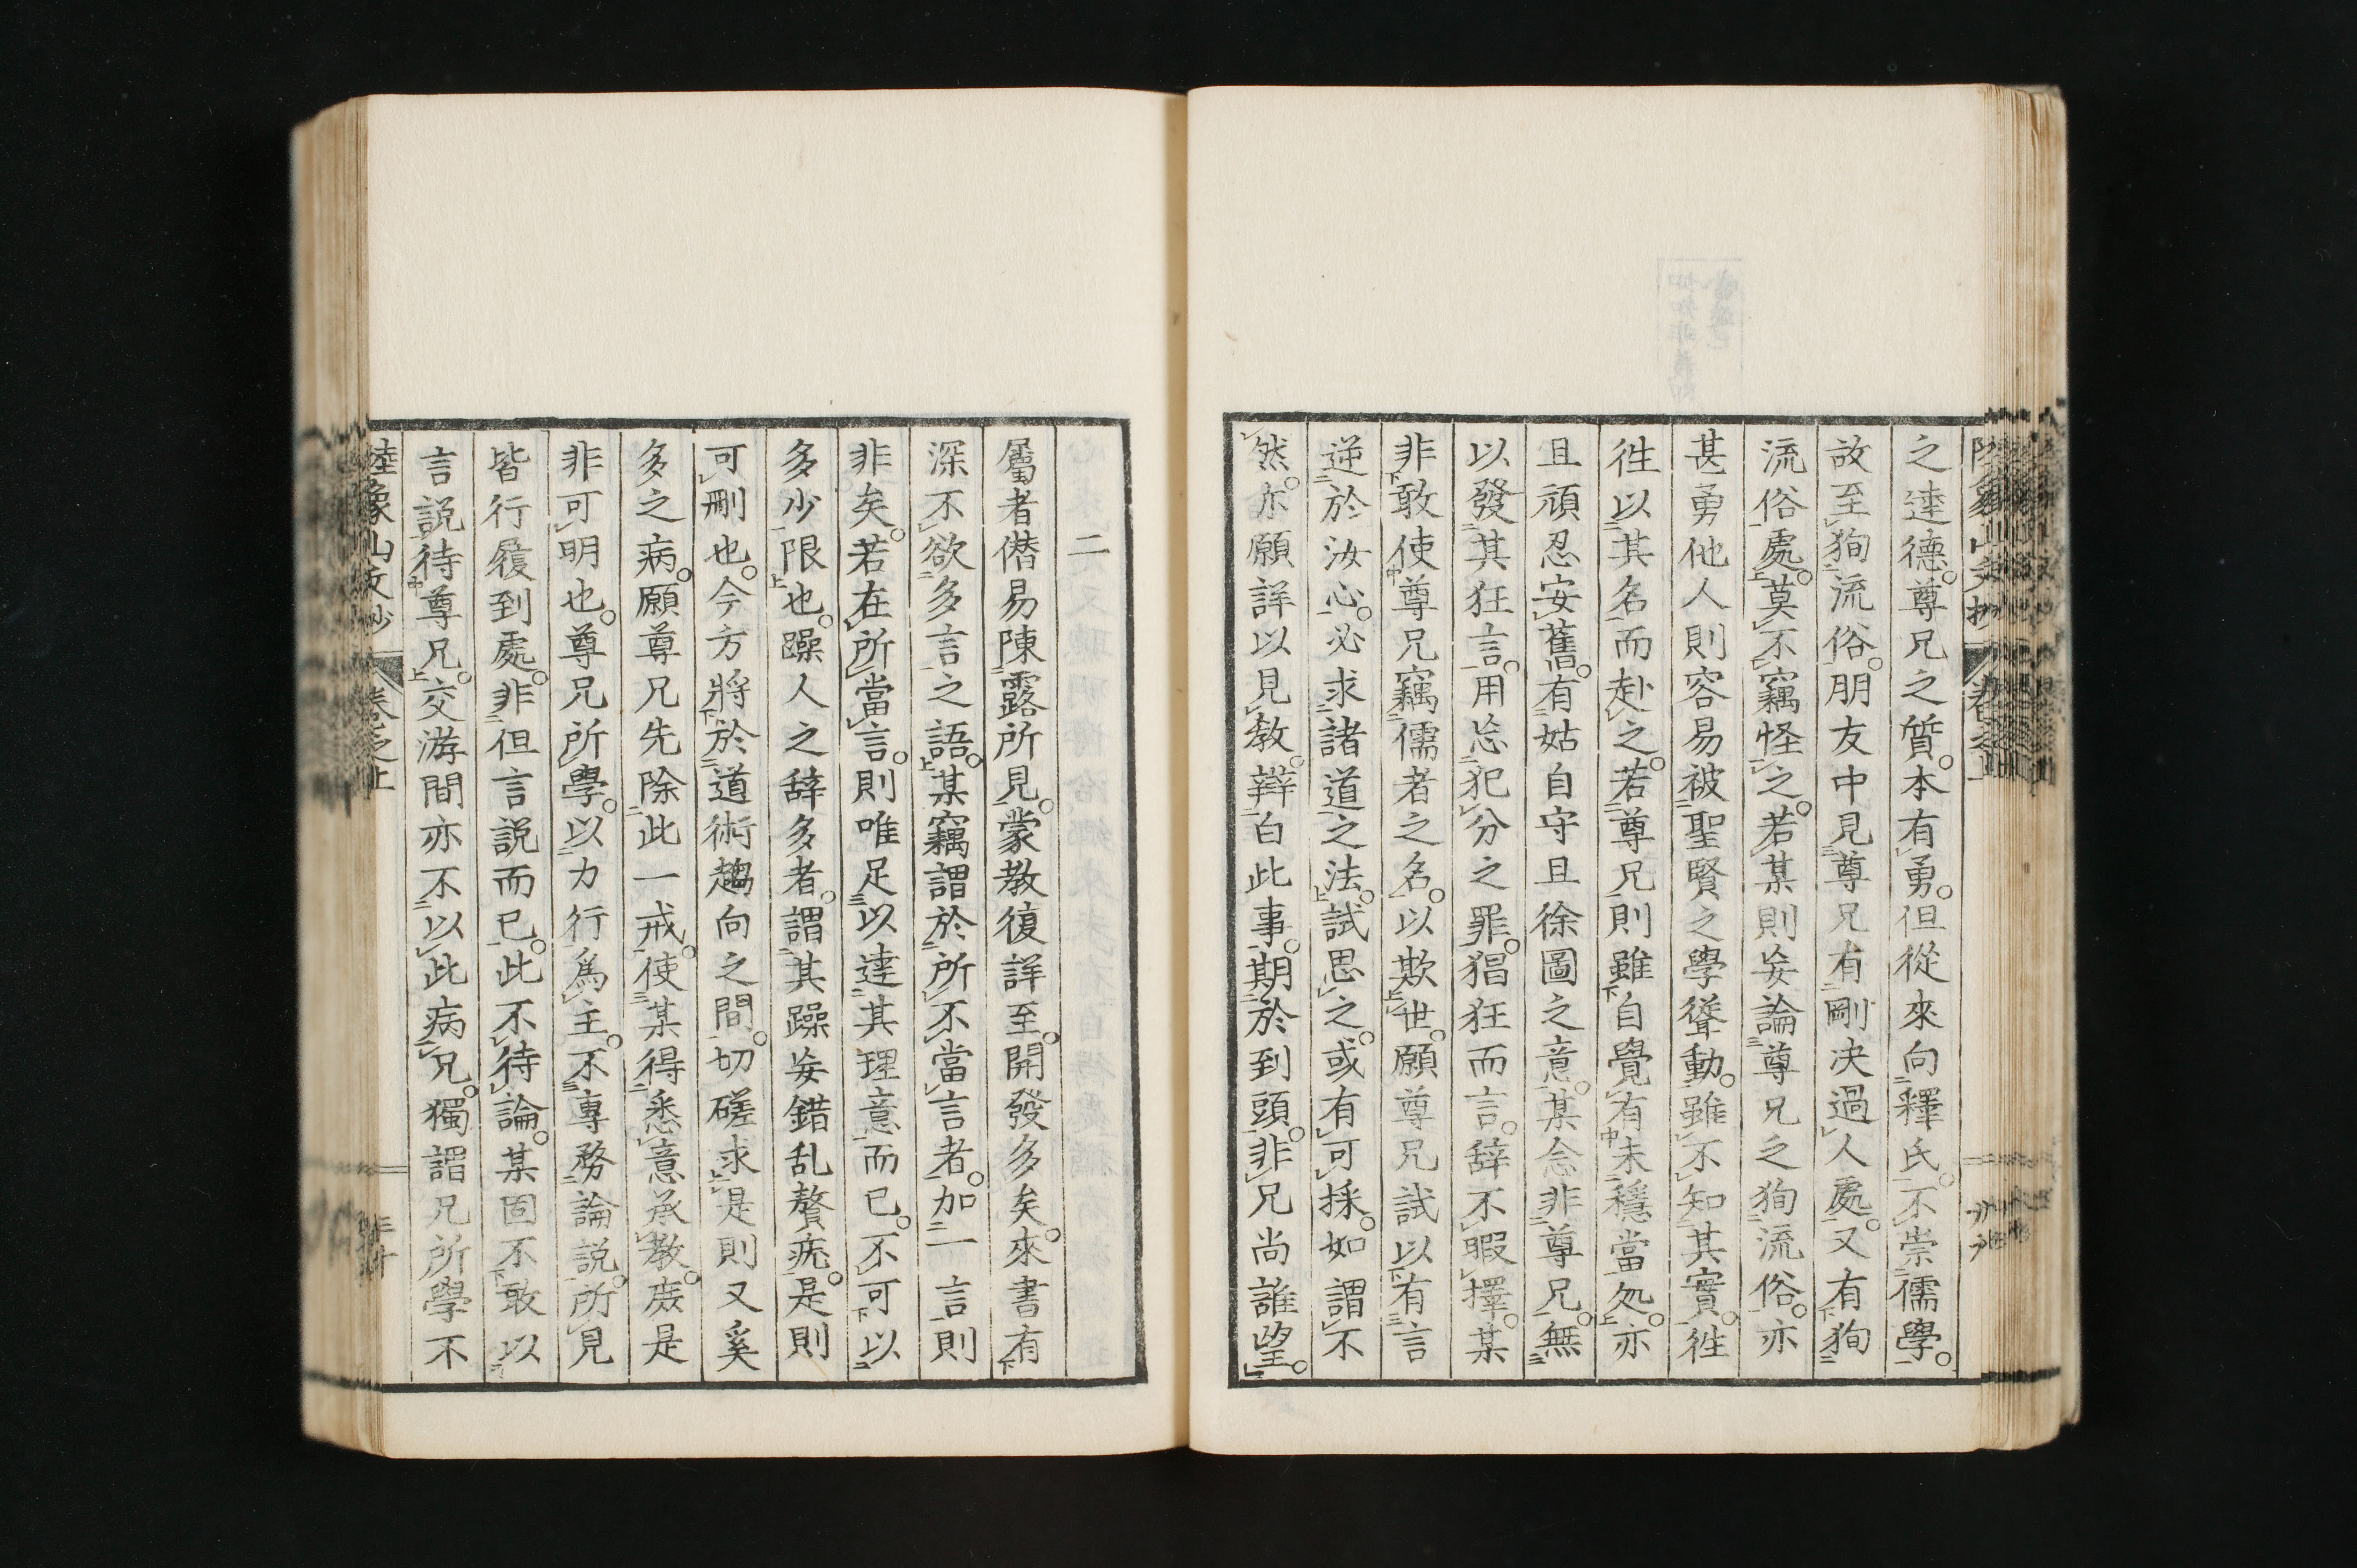 之達德。尊兄之質。本有勇。但從來向釋氏。不崇儒學。
故至狥流俗。朋友中見尊兄有剛决過人處。又有狥
流俗處。莫不竊怪之。若某則妄論尊兄之狥流俗。亦
甚勇他人則容易被聖賢之學聳動。雖不知其實。徃
徃以其名而赴之。若尊兄則雖自覺有未穩當処。亦
且頑忍安舊。有姑自守且徐圖之意。某念非尊兄。無
以發其狂言。用忘犯分之罪。猖狂而言。辞不暇擇。某
非敢使尊兄竊儒者之名。以欺世。願尊兄試以有言
逆於汝心。必求諸道之法。試思之。或有可採。如謂不
然。亦願詳以見教。辯白此事。期於到頭。非兄尚誰望。
二
屬者僭易陳露所見。蒙教復詳至。開發多矣。來書有
深不欲多言之語。某竊謂於所不當言者。加一言則
非矣。若在所當言。則唯足以達其理意而已。不可以
多少限也。躁人之辞多者。謂其躁妄錯乱贅疣。是則
可刪也。今方將於道術趨向之間。切磋求是則又奚
多之病。願尊兄先除此一戒。使某得悉意承教。庶是
非可明也。尊兄所學。以力行爲主。不專務論説。所見
皆行履到處。非但言説而已。此不待論。某固不敢以
言説待尊兄。交游間亦不以此病兄。獨謂兄所學不
陸象山文抄 卷之上